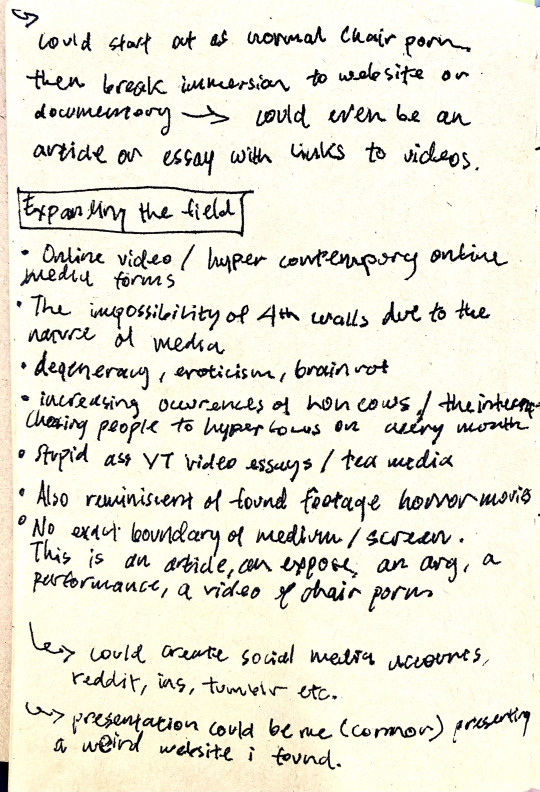 could start out as normal chair porn.
then break immersion to website or
documentary → could even be an
article or essay with links to videos.
Expanding the field
• Online video / hyper contempory online
media forms
• The impossibility of 4th walls due to the
nature of media
• degeneracy, eroticism, brainrot
• increasing occurences of / the internet
chosing people to hyperfocus on every month
• Stupid ass YT video essays / tea media
• Also reminiscent of found footage horror movies
• No exact boundary of medium / screen.
This is an article, an expose, an arg, a
performance, a video of chair porn
↳ could create social media accounts,
reddit, ins, tumblr etc.
↳ presentation could be me (connor) presenting
a weird website i found.